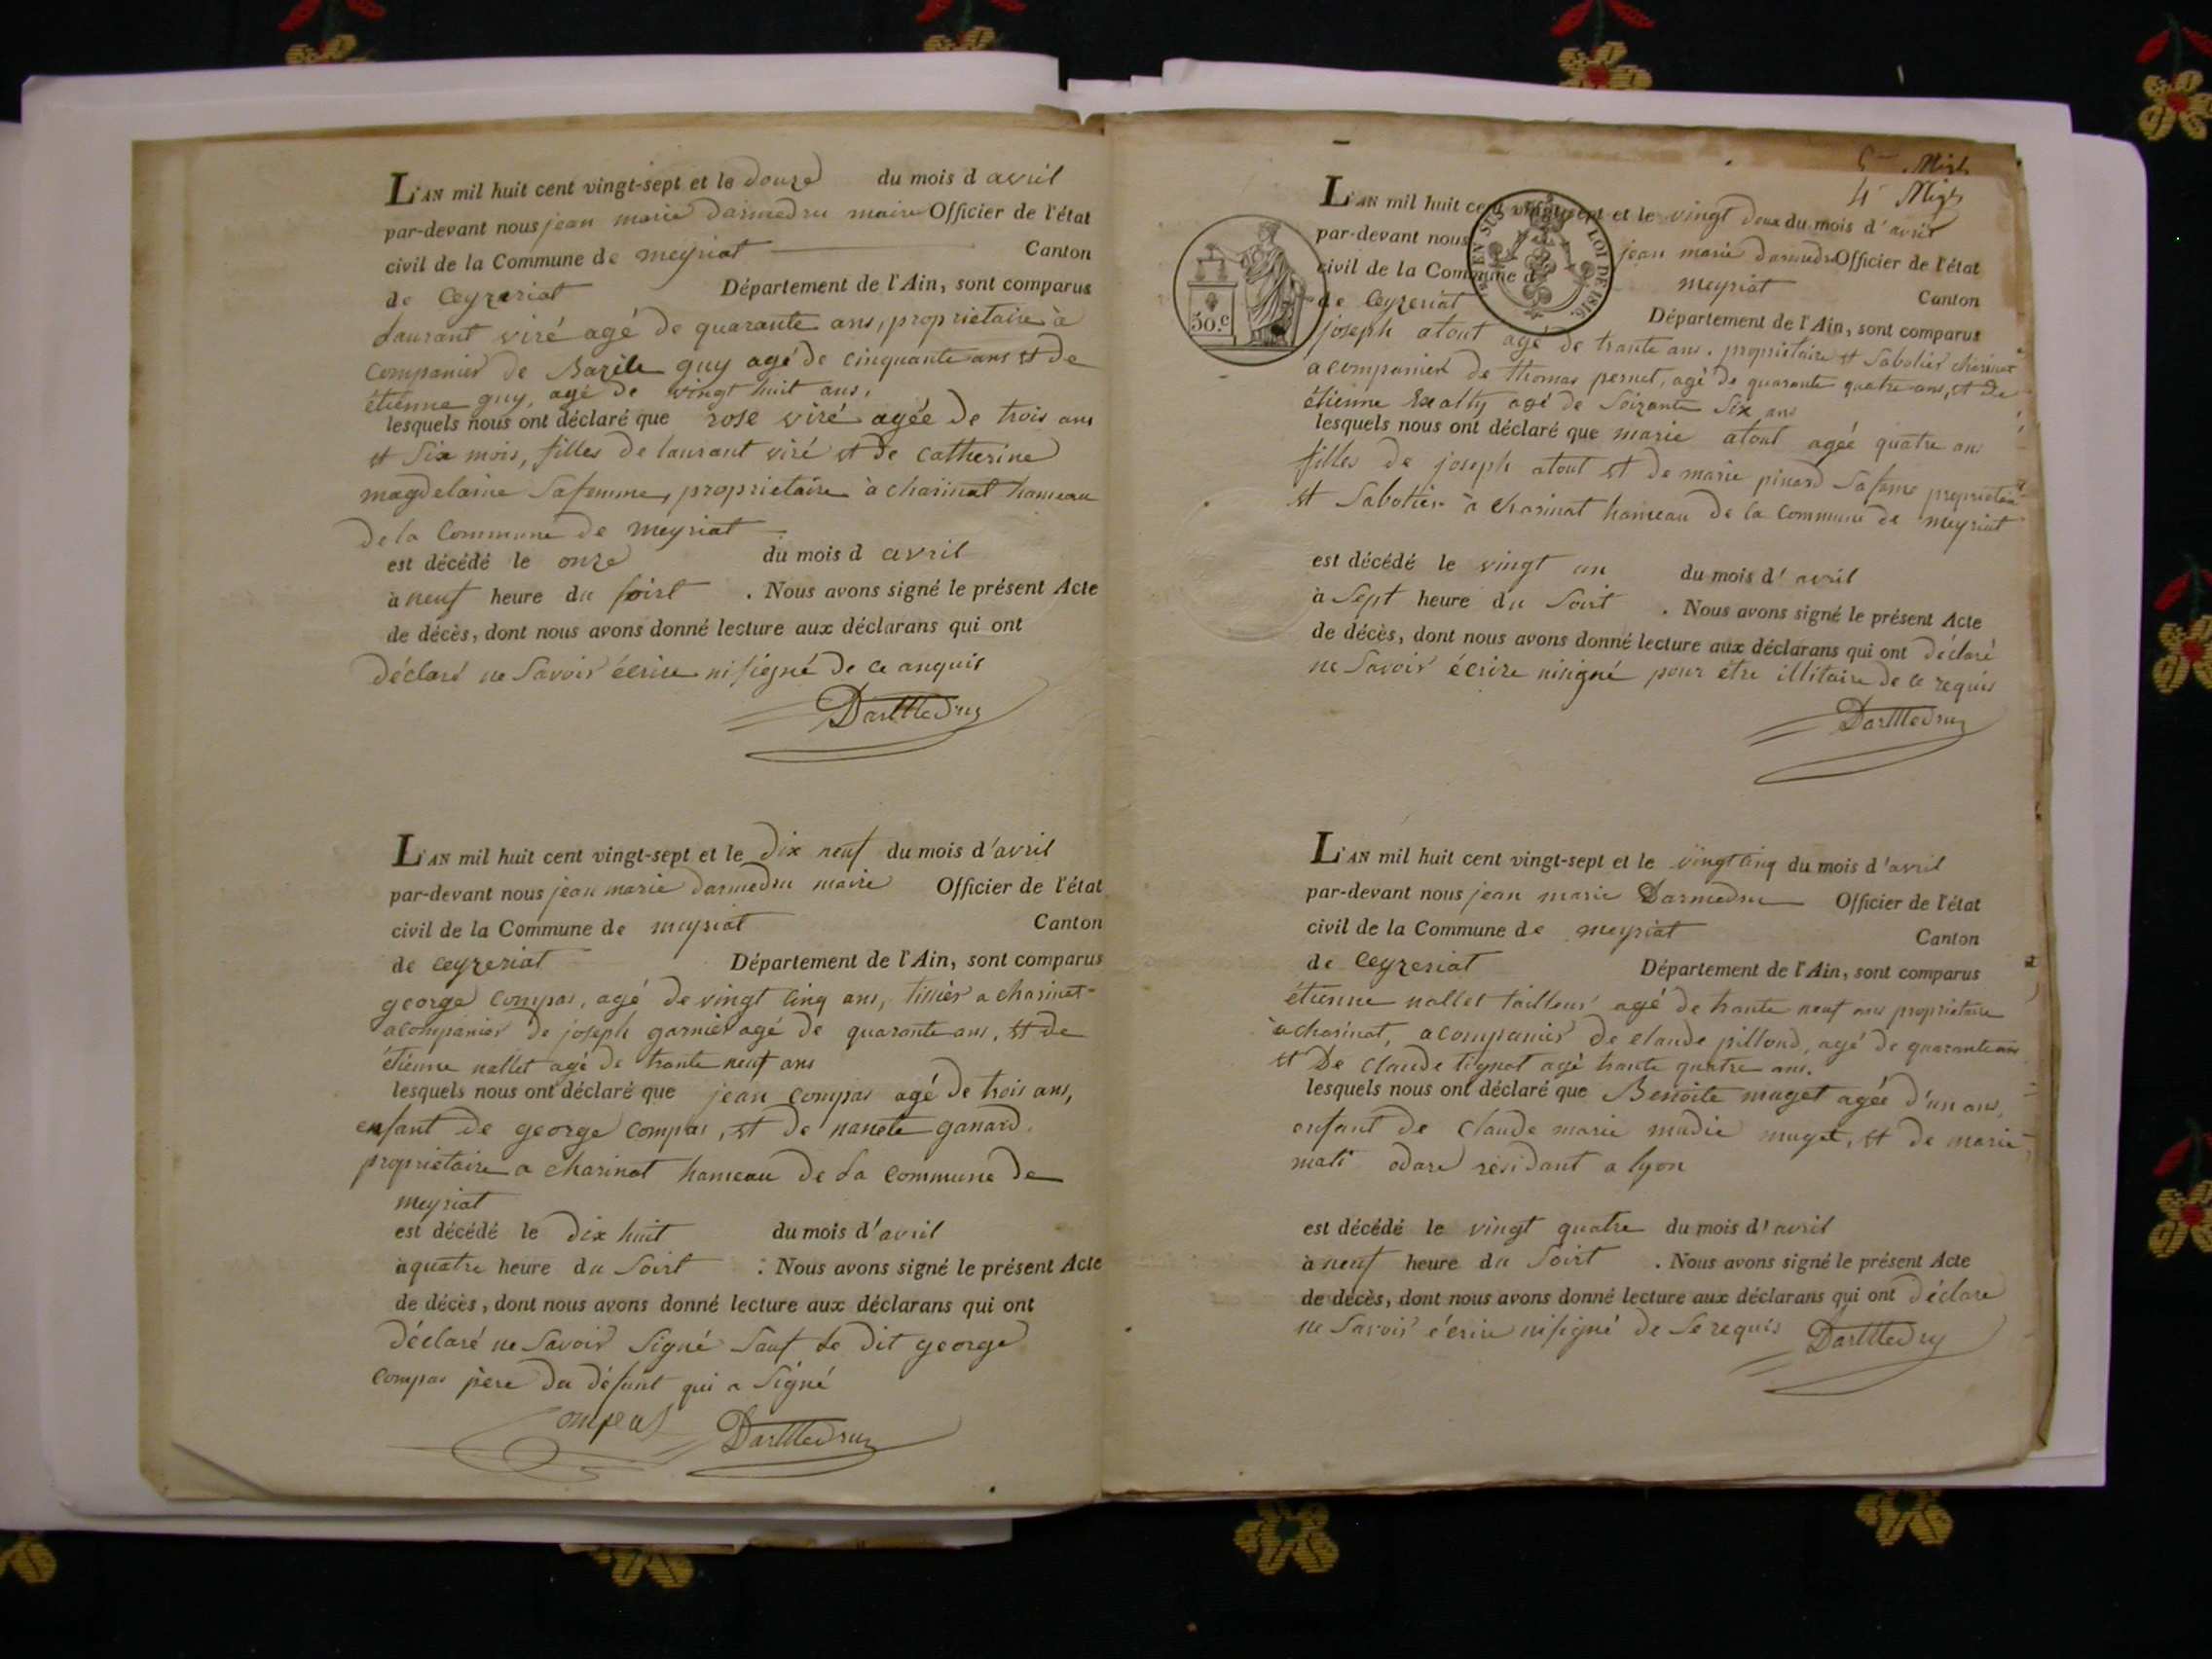 L'AN mil huit cent vingt-sept et le douze du mois d avril
par-devant nous jean marie darmedru maire Officier de l'état
civil de la Commune de meyriat Canton
de Ceyzeriat Département de l'Ain, sont comparus
Laurant viré agé de quarante ans, proprietaire à
companier de Bazile guy agé de cinquante ans et de
étienne guy, agé de vingt huit ans,
lesquels nous ont déclaré que rose viré agée de trois ans
et Six mois, filles de laurant viré et de Catherine
magdelaine Safemme, proprietaire à charinat hameau
de la Commune de meyriat
est décédé le onze du mois d avril
à neuf heure du soirt . Nous avons signé le présent Acte
de décès, dont nous avons donné lecture aux déclarans qui ont
déclaré ne Savoir écrire ni signé de ce anquis
DarMedru
L'AN mil huit cent vingt-sept et le dix neuf du mois d'avril
par-devant nous jean marie darmedru maire Officier de l'état
civil de la Commune de meyriat Canton
de Ceyzeriat Département de l'Ain, sont comparus
george compas, agé de vingt cinq ans, tissier a charinat
acompanier de joseph garnier agé de quarante ans, et de
étienne nallet agé de trante neuf ans
lesquels nous ont déclaré que jean compas agé de trois ans,
enfant de george compas, et de nanete ganard
proprietaire a charinat hameau de La commune de
meyriat
est décédé le dix huit du mois d'avril
à quatre heure du Soirt . Nous avons signé le présent Acte
de décès, dont nous avons donné lecture aux déclarans qui ont
déclaré ne Savoir Signé Sauf Le dit george
compas père du défunt qui a Signé
Compas DarMedru
4 Migts
L'AN mil huit cent vingt-sept et le vingt deux du mois d'avril
par-devant nous jean marie darmedru Officier de l'état
civil de la Commune de meyriat Canton
de Ceyzeriat Département de l'Ain, sont comparus
EN SUS LOI DE 1816.
50.c
joseph atout agé de trante ans, proprietaire et Sabotier charinat
acompanier de thomas pernet, agé de quarante quatre ans, et de
étienne agé de Soizante Six ans
lesquels nous ont déclaré que marie atout ageé quatre ans
filles de joseph atout et de marie pinard Safame proprietaire
et Sabotier à charinat hameau de la commune de meyriat
est décédé le vingt un du mois d'avril
à Sept heure du Soirt . Nous avons signé le présent Acte
de décès, dont nous avons donné lecture aux déclarans qui ont déclaré
ne Savoir écrire nisigné pour être illitaire de ce requis
DarMedru
L'AN mil huit cent vingt-sept et le vingt cinq du mois d'avril
par-devant nous jean marie Darmedru Officier de l'état
civil de la Commune de meyriat Canton
de Ceyzeriat Département de l'Ain, sont comparus
étienne nallet tailleur agé de trante neuf ans proprietaire
a charinat, acompanier de claude pillond, agé de quarante ans
et De Claude tignat agé trante quatre ans.
lesquels nous ont déclaré que Benoite muget ageé d'un ans,
enfant de Claude marie mudie muget, et de marie
mati odare résidant a lyon
est décédé le vingt quatre du mois d'avril
à neuf heure du Soirt . Nous avons signé le présent Acte
de décès, dont nous avons donné lecture aux déclarans qui ont déclare
ne Savoir écrire nisigné de Se requis DarMedru